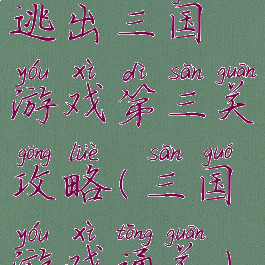 逃出三国
yóu xì dì sān guān
游戏第三关
gōng lüè sān guó
攻略(三国
yóu xì tōng guān
游戏通关)